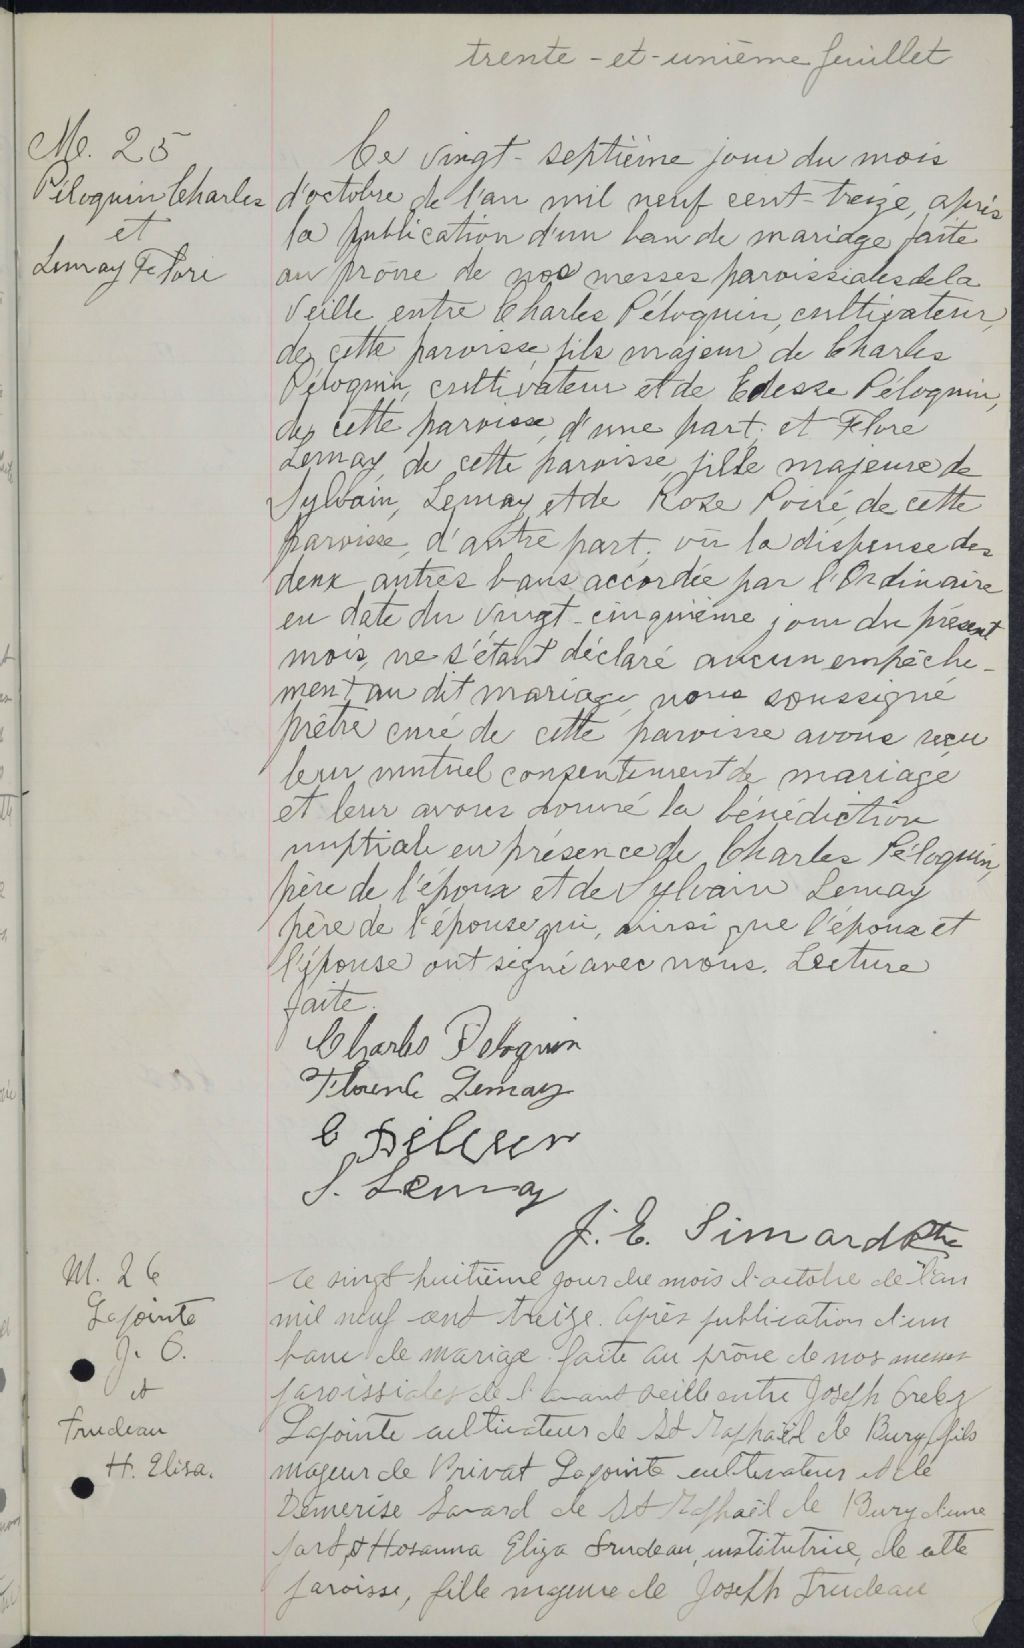 trente-et-unième feuillet
M. 25
Péloquin Charles
et
Lemay Flore
Ce vingt-septième jour du mois
d'octobre de l'an mil neuf cent-treize, après
la publication d'un ban de mariage faite
au prône de nos messes paroissiales de la
veille entre Charles Péloquin, cultivateur,
de cette paroisse, fils majeur de Charles
Péloquin, cultivateur et de Edesse Péloquin,
de cette paroisse, d'une part; et Flore
Lemay, de cette paroisse, fille majeure de
Sylvain, Lemay et de Rose Poiré, de cette
paroisse, d'autre part; vû la dispense des
deux autres bans accordée par l'Ordinaire
en date du vingt-cinquième jour du présent
mois, ne s'étant déclaré aucun empêche-
ment au dit mariage, nous soussigné
prêtre curé de cette paroisse avons reçu
leur mutuel consentement de mariage
et leur avons donné la bénédiction
nuptiale en présence de Charles Péloquin,
père de l'époux et de Sylvain Lemay
père de l'épouse qui, ainsi que l'époux et
l'épouse ont signé avec nous. Lecture
faite.
Charles Peloquin
Lemay
C
S. Lemay
J. E. Simard Ptre
M. 26
Lapointe
J. O.
et
Trudeau
H. Elisa.
Ce vingt huitième jour du mois d'octobre de l'an
mil neuf cent treize. Après publication d'un
banc de mariage faite au prône de nos messes
paroissiales de l'avant veille entre Joseph
Lapointe cultivateur de St Raphaël de Bury, fils
majeur de Privat Lapointe cultivateur et de
Démerise Savard de St Raphaël de Bury d'une
part, et Hosanna Eliza Trudeau, institutrice, de cette
paroisse, fille majeure de Joseph Trudeau